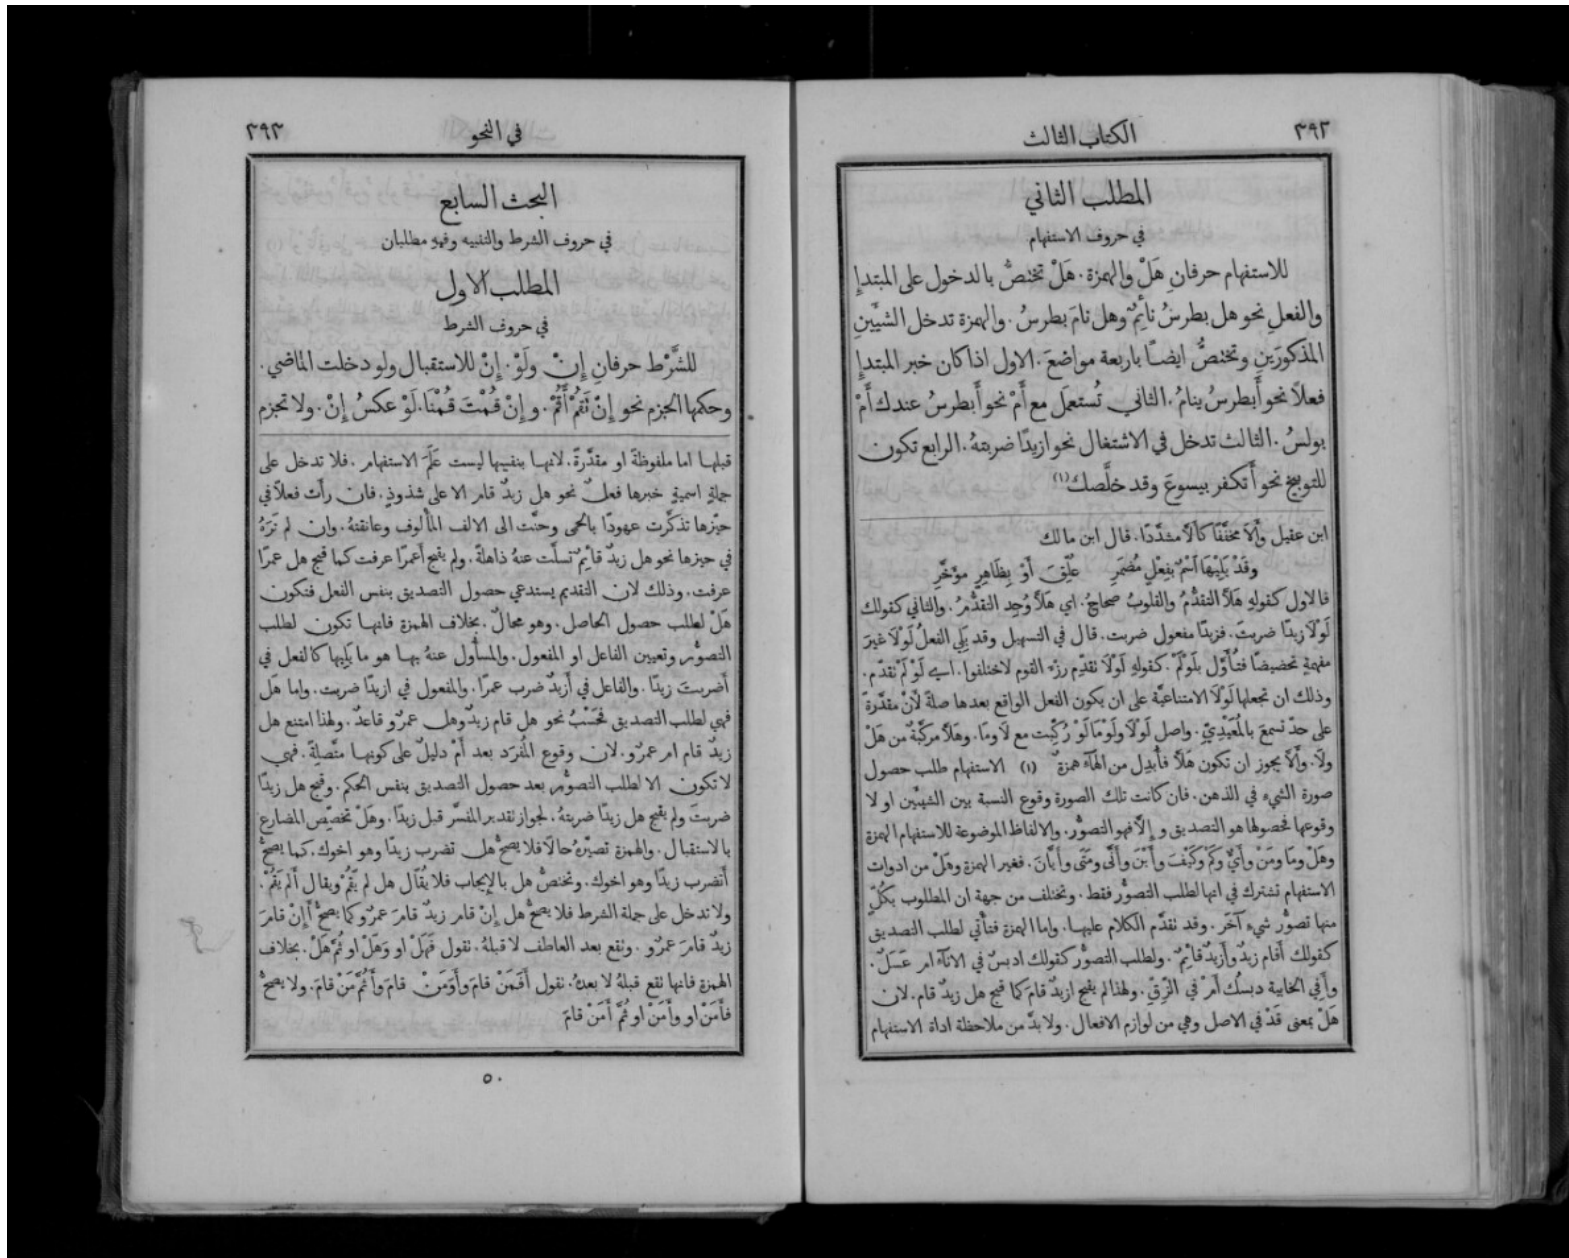 ٣٩٢
الكتاب الثالث
المطلب الثاني
في حروف الاستفهام
للاستفهام حرفانِ هَلْ والهمزة. هَلْ تخنصُّ بالدخول على المبتدإِ
والفعلِ نحو هل بطرسُ نائِمٌ وهل نامَ بطرسُ. والهمزة تدخل الشيَّينِ
المذكورَينِ وتخنصُّ ايضًا باربعة مواضعَ. الاول اذا كان خبر المبتدإِ
فعلاً نحو أَبطرسُ ينامُ. الثاني تُستعمَل مع أَمْ نحو أَبطرسُ عندك أَمْ
بولسُ. الثالث تدخل في الاشتغال نحو ازيدًا ضربتهُ. الرابع تكون
للتوبيخ نحو أَتكفر بيسوعَ وقد خلَّصك (١)
ابن عقيل وأَلاَ مخفَّفًا كأَلاَّ مشدَّدًا. قال ابن مالك
وَقَدْ يَلِيْهَا اَسْمٌ بِفِعْلٍ مُضْمَرِ عُلِّقَ أَوْ بِظَاهِرٍ مؤَخَّرِ
فالاول كقولهِ هَلاَّ التقدُّمُ والقلوبُ صحاحُ. اي هَلاَّ وُجِد التقدُّمُ. والثاني كقولك
لَوْلاَ زيدًا ضربتَ. فزيدًا مفعول ضربت. قال في التسهيل وقد يَلِي الفعلُ لَوْلاَ غيرَ
مفهمةٍ تحضيضًا فتُأَوَّل بلَوْلَمْ. كقولهِ لَوْلاَ تقدِّم رزء القوم لاختلفوا. اي لَوْ لَمْ تقدّم.
وذلك ان تجعلها لَوْلاَ الامتناعيَّة على ان يكون الفعل الواقع بعدها صلةً لأَنْ مقدَّرةً
على حدّ تسمعَ بالمُعَيْدِيِّ. واصل لَوْلاَ ولَوْمَا لَوْ رُكِّبَت مع لاَ ومَا. وهَلاَّ مركَّبةٌ من هَلْ
ولاَ. وأَلاَّ يجوز ان تكون هَلاَّ فأُبدِل من الهآء همزةٌ (١) الاستفهام طلب حصول
صورة الشيء في الذهن. فان كانت تلك الصورة وقوع النسبة بين الشيئَين او لا
وقوعها فحصولها هو التصديق وإلاَّ فهو التصوُّر. والالفاظ الموضوعة للاستفهام الهمزة
وهَلْ ومَا ومَنْ وأَيٌّ وكَمْ وكَيْفَ وأَيْنَ وأَنَّى ومَتَى وأَيَّانَ. فغير الهمزة وهَلْ من ادوات
الاستفهام تشترك في انها لطلب التصوُّر فقط. وتختلف من جهة ان المطلوب بكُلٍّ
منها تصوُّر شيء آخَر. وقد تقدَّم الكلام عليها. واما الهمزة فتأتي لطلب التصديق
كقولك أَقام زيدٌ وأَزيدٌ قائِمٌ. ولطلب التصوُّر كقولك ادبسٌ في الاناء ام عَسَلٌ.
وأَفِي الخابية دبسُك أَمْ في الزِّقّ. ولهذا لم يقبح ازيدٌ قامَ كما قبح هل زيدٌ قام. لان
هَلْ بمعنى قَدْ في الاصل وهي من لوازم الافعال. ولا بدَّ من ملاحظة اداة الاستفهام
٣٩٣
في النحو
البحث السابع
في حروف الشرط والتنبيه وفيهِ مطلبان
المطلب الاول
في حروف الشرط
للشَّرْط حرفانِ إِنْ ولَوْ. إِنْ للاستقبال ولو دخلت الماضي.
وحكمها الجزم نحو إِنْ تَقُمْ أَقُمْ. وإِنْ قُمْتَ قُمْنَا. لَوْ عكسُ إِنْ. ولا تجزم
قبلها اما ملفوظةً او مقدَّرةً. لانها بنفسها ليست عَلَمَ الاستفهام. فلا تدخل على
جملةٍ اسميةٍ خبرها فعلٌ نحو هل زيدٌ قام الا على شذوذٍ. فان رأَت فعلاً في
حيّزها تذكَّرت عهودًا بالحمى وحنَّت الى الالف المأْلوف وعانقتهُ. وان لم تَرَهُ
في حيزها نحو هل زيدٌ قائِمٌ تسلَّت عنهُ ذاهلةً. ولم يقبح أَعمرًا عرفت كما قبح هل عمرًا
عرفت. وذلك لان التقديم يستدعي حصول التصديق بنفس الفعل فتكون
هَلْ لطلب حصول الحاصل. وهو محالٌ. بخلاف الهمزة فانها تكون لطلب
التصوُّر وتعيين الفاعل او المفعول. والمسأُول عنهُ بها هو ما يَليها كالفعل في
أَضربتَ زيدًا. والفاعل في أَزيدٌ ضرب عمرًا. والمفعول في ازيدًا ضربت. واما هَل
فهي لطلب التصديق فَحَسْبُ نحو هل قام زيدٌ وهل عمرٌو قاعدٌ. ولهذا امتنع هل
زيدٌ قام ام عمرٌو. لان وقوع المُفرَد بعد أَمْ دليلٌ على كونها متَّصلةً. فهي
لا تكون الا لطلب التصوُّر بعد حصول التصديق بنفس الحكم. وقبح هل زيدًا
ضربتَ ولم يقبح هل زيدًا ضربتهُ. لجواز تقدير المفسَّر قبل زيدًا. وهَلْ تخصِّص المضارع
بالاستقبال. والهمزة تصيّرهُ حالاً فلا يصحُّ هل تضرب زيدًا وهو اخوك. كما يصحُّ
أَتضرب زيدًا وهو اخوك. وتختصُّ هل بالإِيجاب فلا يُقَال هل لم يَقُمْ ويقال أَلم يَقُمْ.
ولا تدخل على جملة الشرط فلا يصحُّ هل إِنْ قام زيدٌ قامَ عمرٌو كما يصحُّ أَإِنْ قامَ
زيدٌ قامَ عمرٌو. وتقع بعد العاطف لا قبلهُ. تقول فَهَلْ او وَهَلْ او ثُمَّ هَلْ. بخلاف
الهمزة فانها تقع قبلهُ لا بعدهُ. تقول أَفَمَنْ قامَ وأَوَمَنْ قامَ وأَثُمَّ مَنْ قامَ. ولا يصحُّ
فأَمَنْ او وأَمَنْ او ثُمَّ أَمَنْ قامَ
٥٠